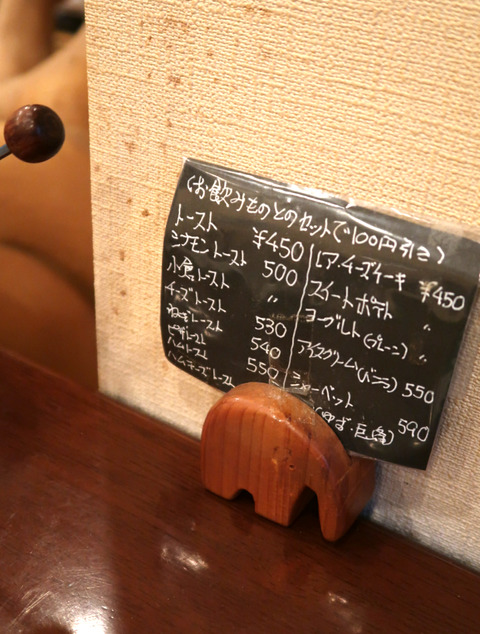 (お飲みものとのセットで100円引き)
トースト ¥450
シナモントースト 500
小倉トースト 〃
チーズトースト 530
ねぎトースト 540
ピザトースト 550
ハムトースト
ハムチーズトースト
レア・チーズケーキ ¥450
スイートポテト 〃
ヨーグルト(プレーン) 〃
アイスクリーム(バニラ) 550
シャーベット
(ゆず・巨峰) 590